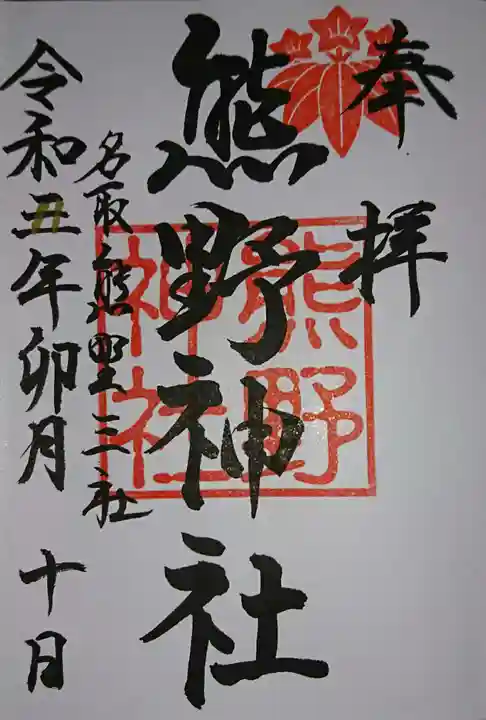 奉拝
熊野神社
熊野
神社
名取熊野三社
令和丑年卯月 十日